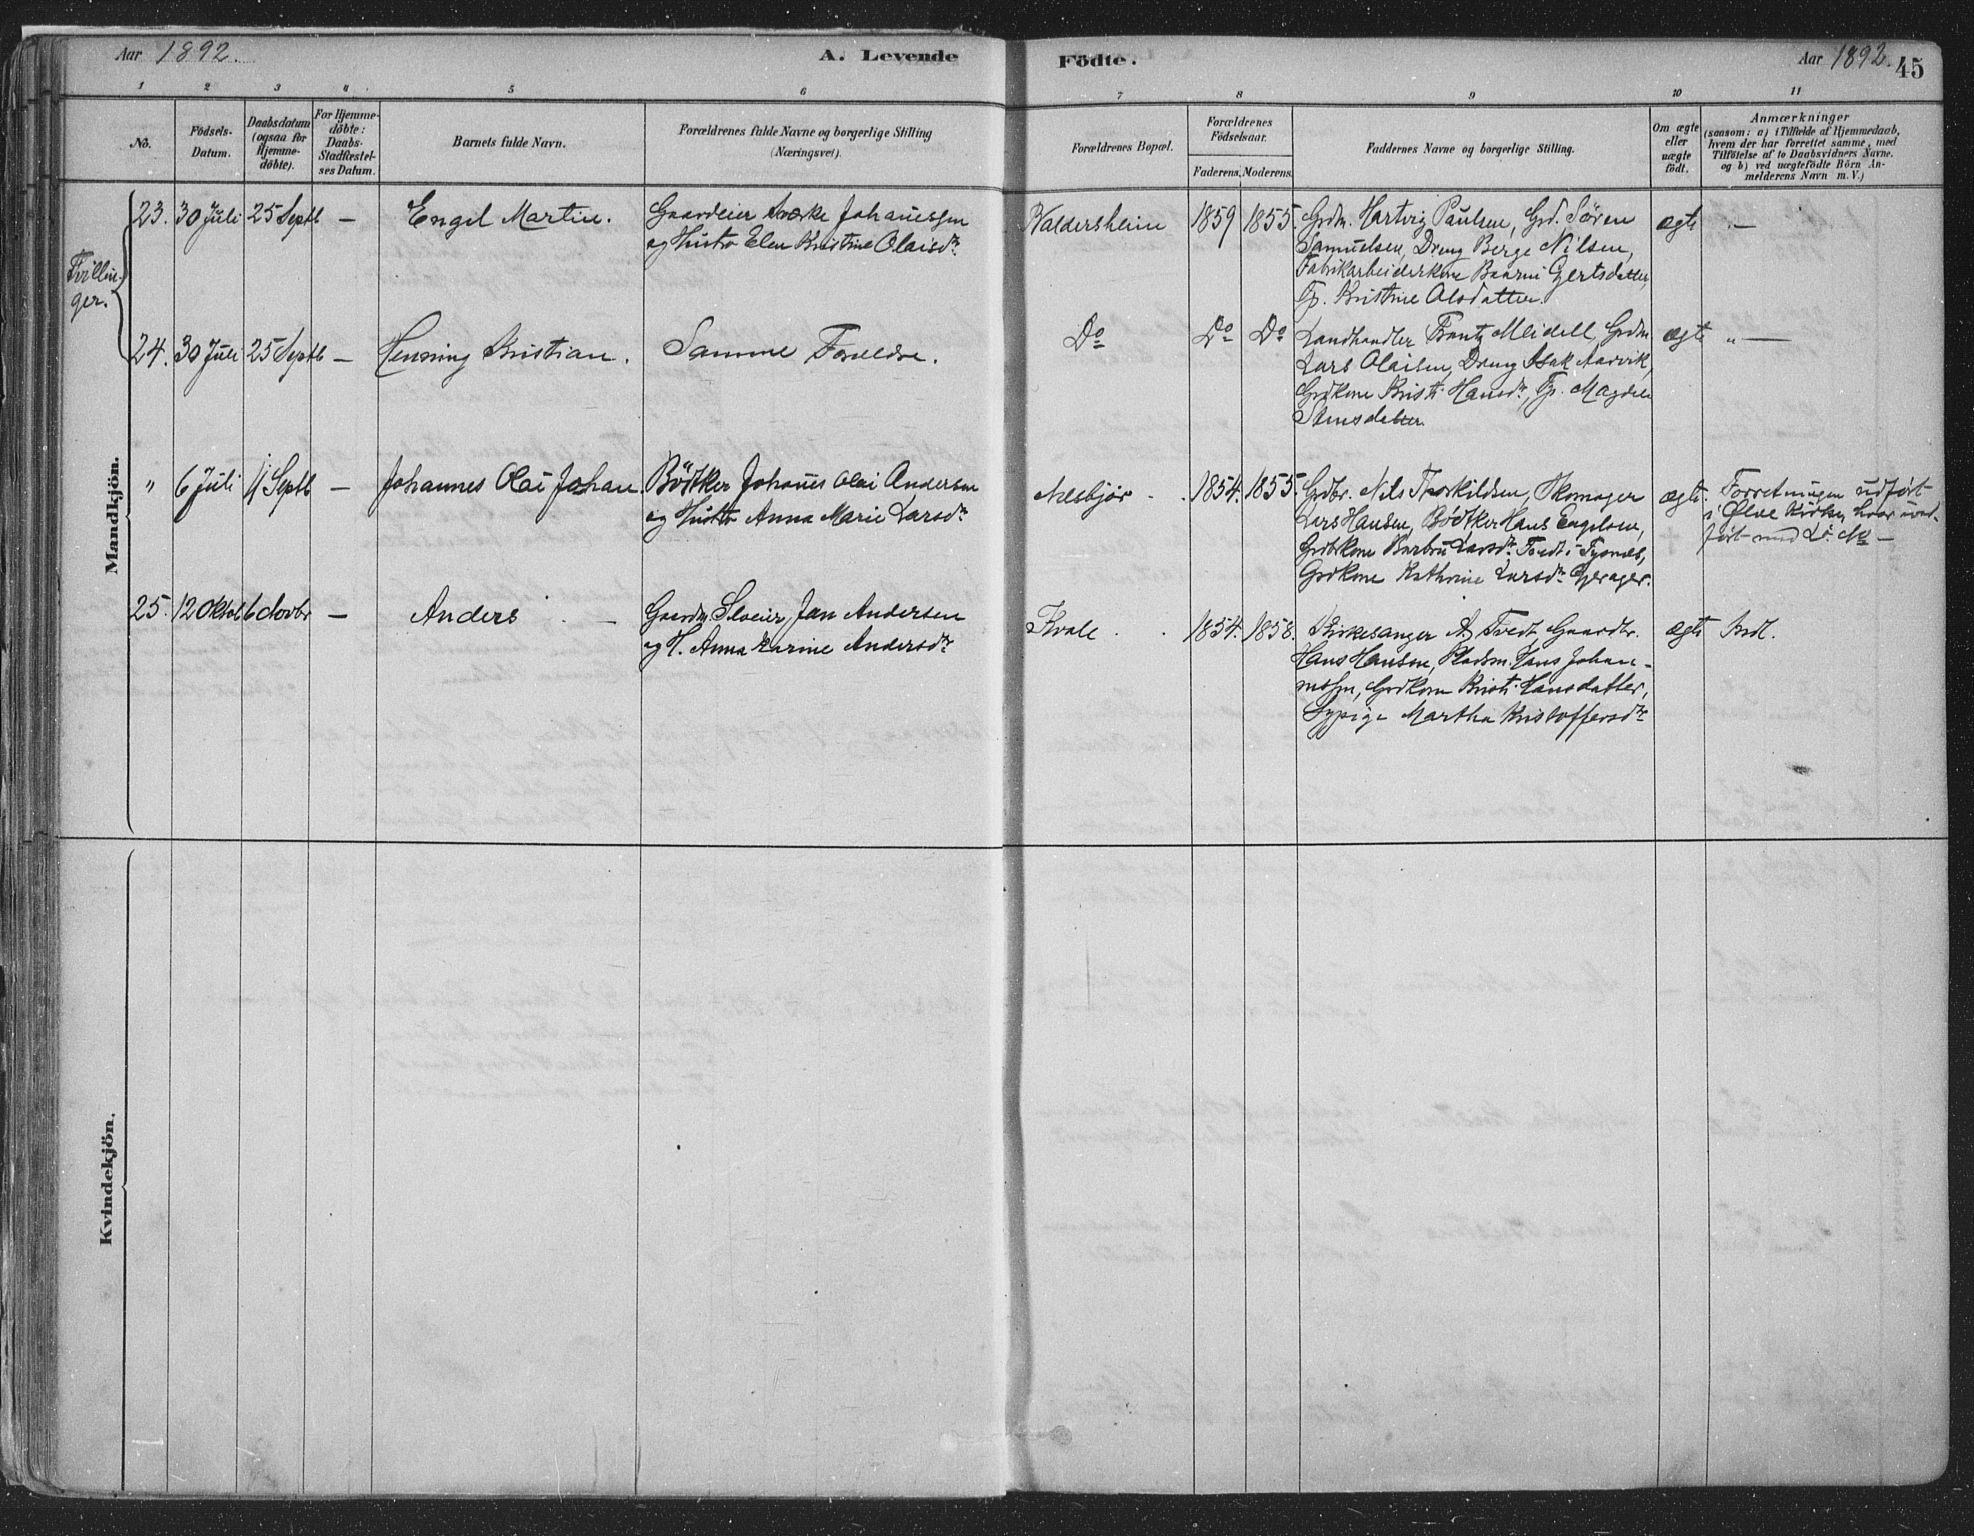 Aar 1892. A. Levende Födte. Aar 1892. 45
1 2 3 4 5 6 7 8 9 10 11
No.
Födsels-
Datum.
Daabsdatum
(ogsaa for
Hjemme-
döbte).
For Hjemme-
döbte:
Daabs-
Stadfæstel-
ses Datum.
Barnets fulde Navn.
Forældrenes fulde Navne og borgerlige Stilling
(Næringsvei).
Forældrenes Bopæl.
Forældrenes
Födselsaar.
Faderens. Moderens.
Faddernes Navne og borgerlige Stilling.
Om ægte
eller
uægte
født.
Anmærkninger
(saasom: a) i Tilfælde af Hjemmedaab,
hvem der har forrettet samme, med
Tilföielse af to Daabsvidners Navne.
og b) ved uægtefödte Börn An-
melderens Navn m. V.)
Mandkjön.
Tvillin-
ger.
23. 30 Juli 25 Septb — Engel Martin.
Gaardeier Sverke Johannessen
og Hustr Elen Kristine Olaisdr
Valdersheim 1859 1855.
Grdm. Hartvig Paulsen, Grd. Sören
Samuelsen, Dreng Berge Nilsen,
Fabrikarbeiderkone Baarni Gjertsdatter
Tp. Kristine Olsdatter.
ægte —
24. 30 Juli 25 Septb — Henning Kristian. Samme Forældre. Do Do Do
Landhandler Frantz Meidell, Grdm
Lars Olaisen, Dreng Isak Aarvik,
Grdkone Kristi Hansdr, Tp. Magdele
Stensdatter
ægte " —
" 6 Juli 11 Septb — Johannes Olai Johan.
Bödtker Johanes Olai Andersen
og Hustr Anna Marie Larsdr
Nesbjör 1854. 1855.
Grdbr. Nils Thorkildsen, Skomager
Lars Hansen, Bödtker Hans Engelsen,
Grdbkone Barbru Larsdr Tvedt i Tysnæs,
Grdkone Kathrine Larsdr Gjerager.
ægte.
Forretningen udfört
i Ølve Kirke, hvor ind-
fört med L. No —
25. 12 Oktob 6 Novbr — Anders —
Gaardm. Selveier Jan Andersen
og H. Anna Karine Andersdr
Kvale 1854. 1858.
Kirkesanger A. Tvedt, Gaardbr.
Hans Hansen, Pladsm. Hans Johan-
nessen, Grdkone Kristi Hansdatter,
Sypige Martha Kristoffersdr
ægte Indl.
Kvindekjön.